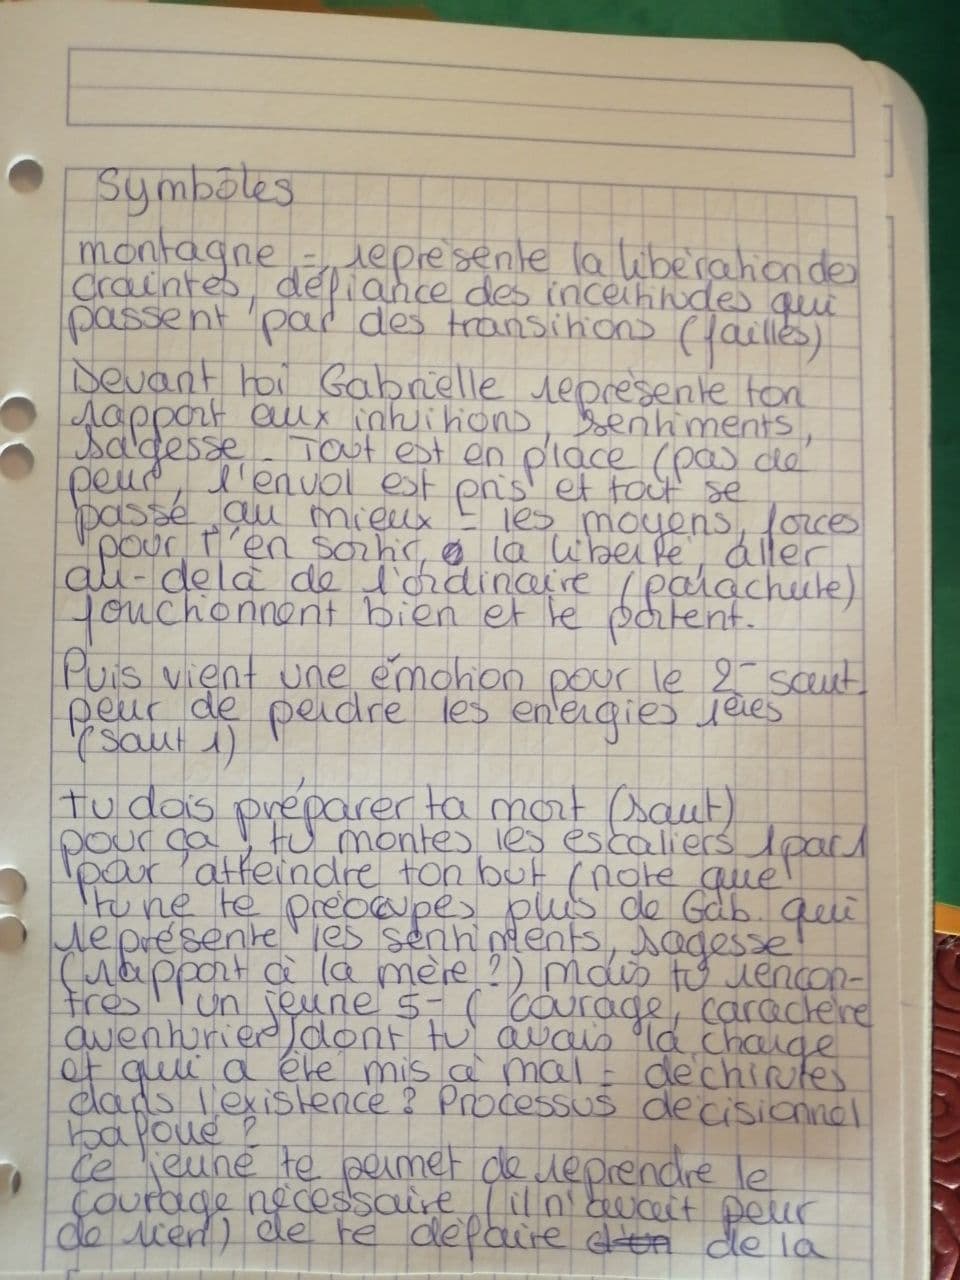 Symbôles
montagne = représente la libération des
craintes, défiance des incertitudes qui
passent par des transitions (failles)
Devant toi Gabrielle représente ton
rapport aux intuitions, sentiments,
sagesse. Tout est en place (pas de
peur, l'envol est pris et tout se
passe au mieux = les moyens, forces
pour t'en sortir, la liberté, aller
au-delà de l'ordinaire (parachute)
fonctionnent bien et te portent.
Puis vient une émotion pour le 2- saut
peur de perdre les energies
(saut 1)
tu dois préparer ta mort (saut)
pour ça, tu montes les escaliers 1 par 1
pour atteindre ton but (note que
tu ne te préocupes plus de Gab. qui
représente les sentiments, sagesse
(rapport à la mère ?) mais tu rencon-
tres un jeune S- (courage, caractère
aventurier) dont tu avais la charge
et qui a été mis à mal = déchirures
dans l'existence ? Processus décisionnel
bafoué ?
Ce jeune te permet de reprendre le
courage nécessaire (il n'avait peur
de rien) de te défaire de la